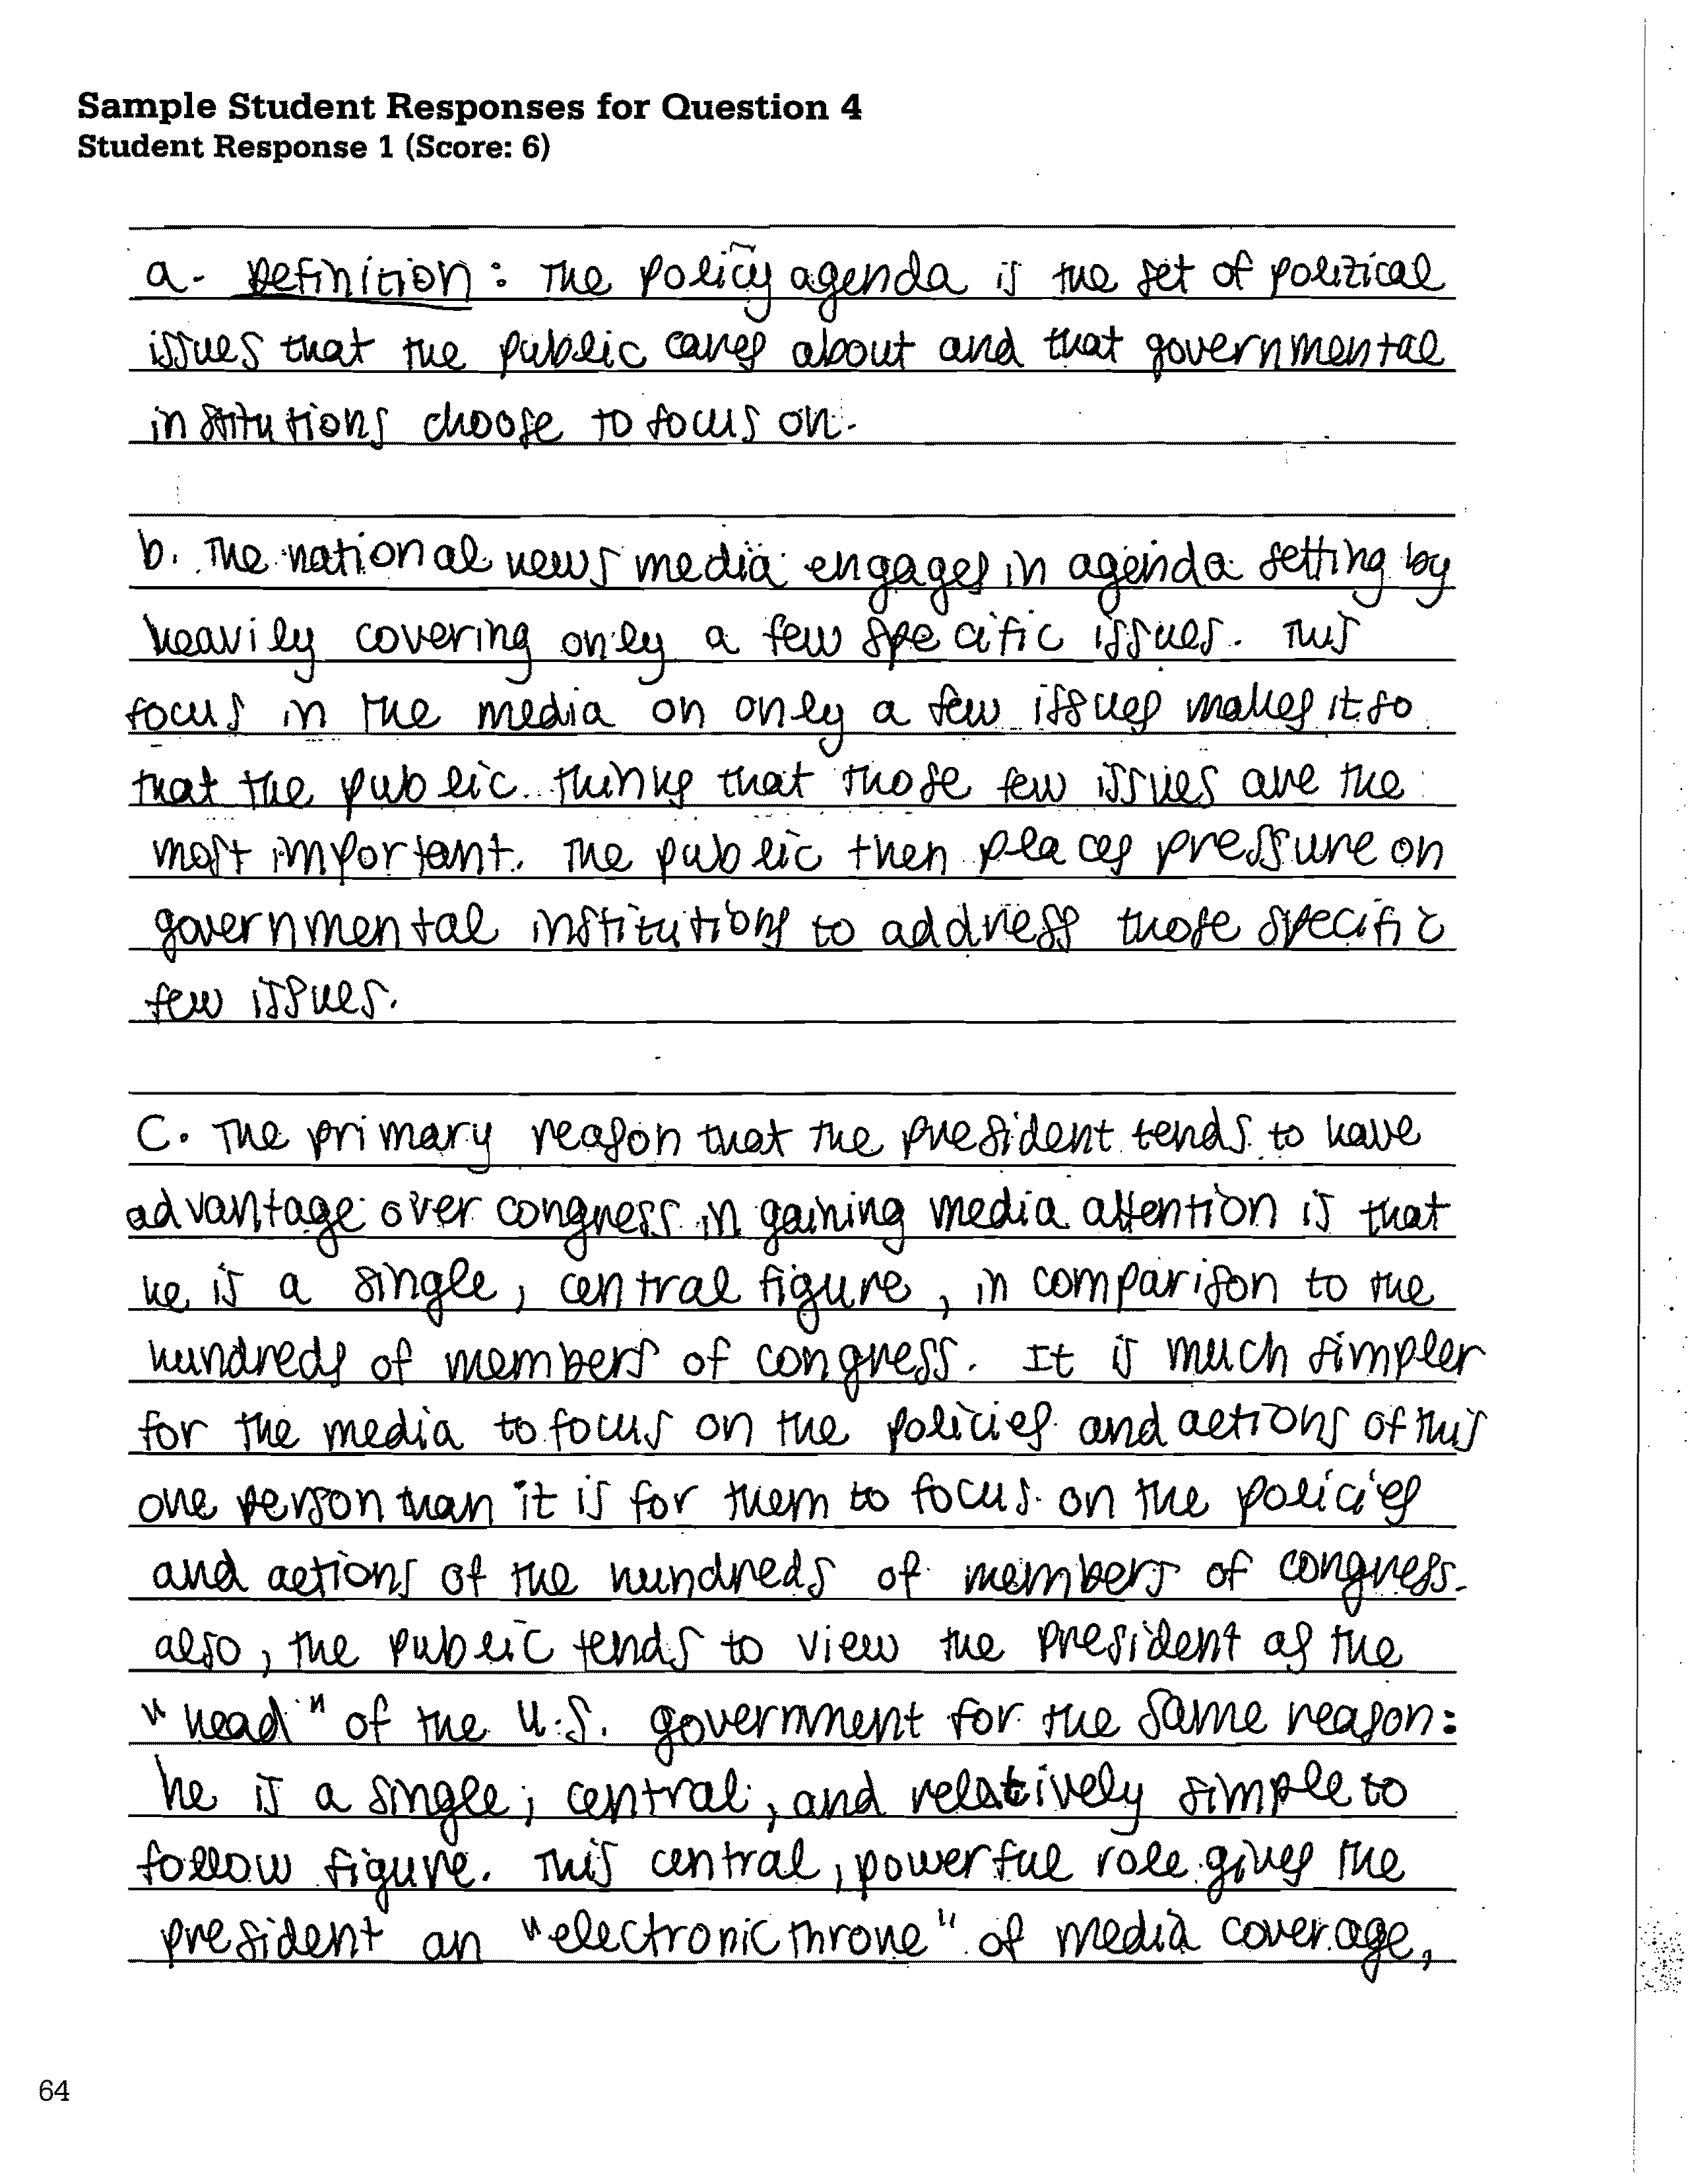 Sample Student Responses for Question 4
Student Response 1 (Score: 6)
a. Definition: The policy agenda is the set of political
issues that the public cares about and that governmental
institutions choose to focus on.
b. The national news media engages in agenda setting by
heavily covering only a few specific issues. This
focus in the media on only a few issues makes it so
that the public thinks that those few issues are the
most important. The public then places pressure on
governmental institutions to address those specific
few issues.
C. The primary reason that the president tends to have
advantage over congress in gaining media attention is that
he is a single, central figure, in comparison to the
hundreds of members of congress. It is much simpler
for the media to focus on the policies and actions of this
one person than it is for them to focus on the policies
and actions of the hundreds of members of congress.
also, the public tends to view the president as the
"head" of the U.S. government for the same reason:
he is a single, central, and relatively simple to
follow figure. This central, powerful role gives the
president an "electronic throne" of media coverage,
64